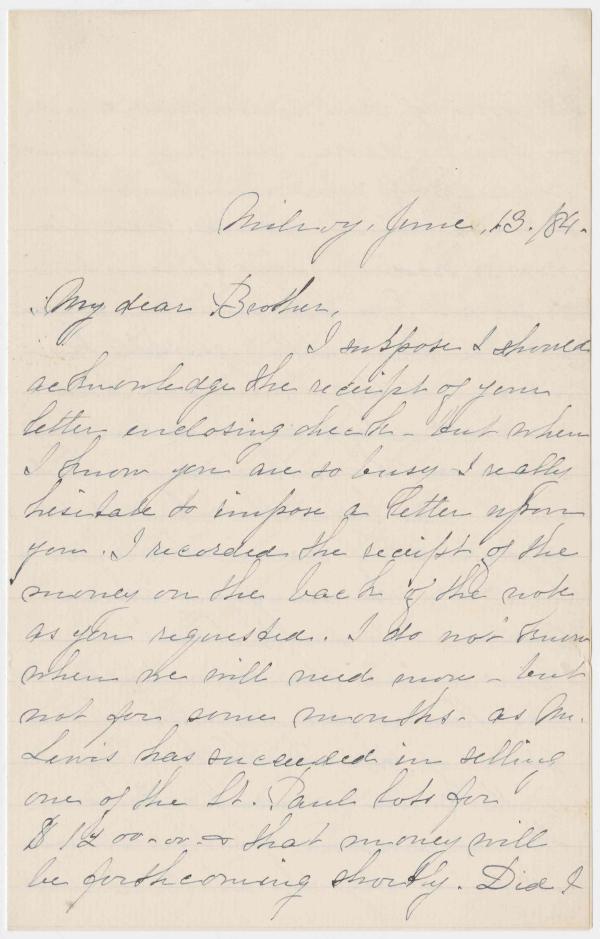 Milroy, June, 13. /84.
My dear Brother,
I suppose I should
acknowledge the receipt of your
letter enclosing check - but when
I know you are so busy I really
hesitate to impose a letter upon
you. I recorded the receipt of the
money on the back of the note
as you requested. I do not know
when we will need more - but
not for some months - as Mr.
Lewis has succeeded in selling
one of the St. Paul lots for
that money will
be forthcoming shortly. Did I